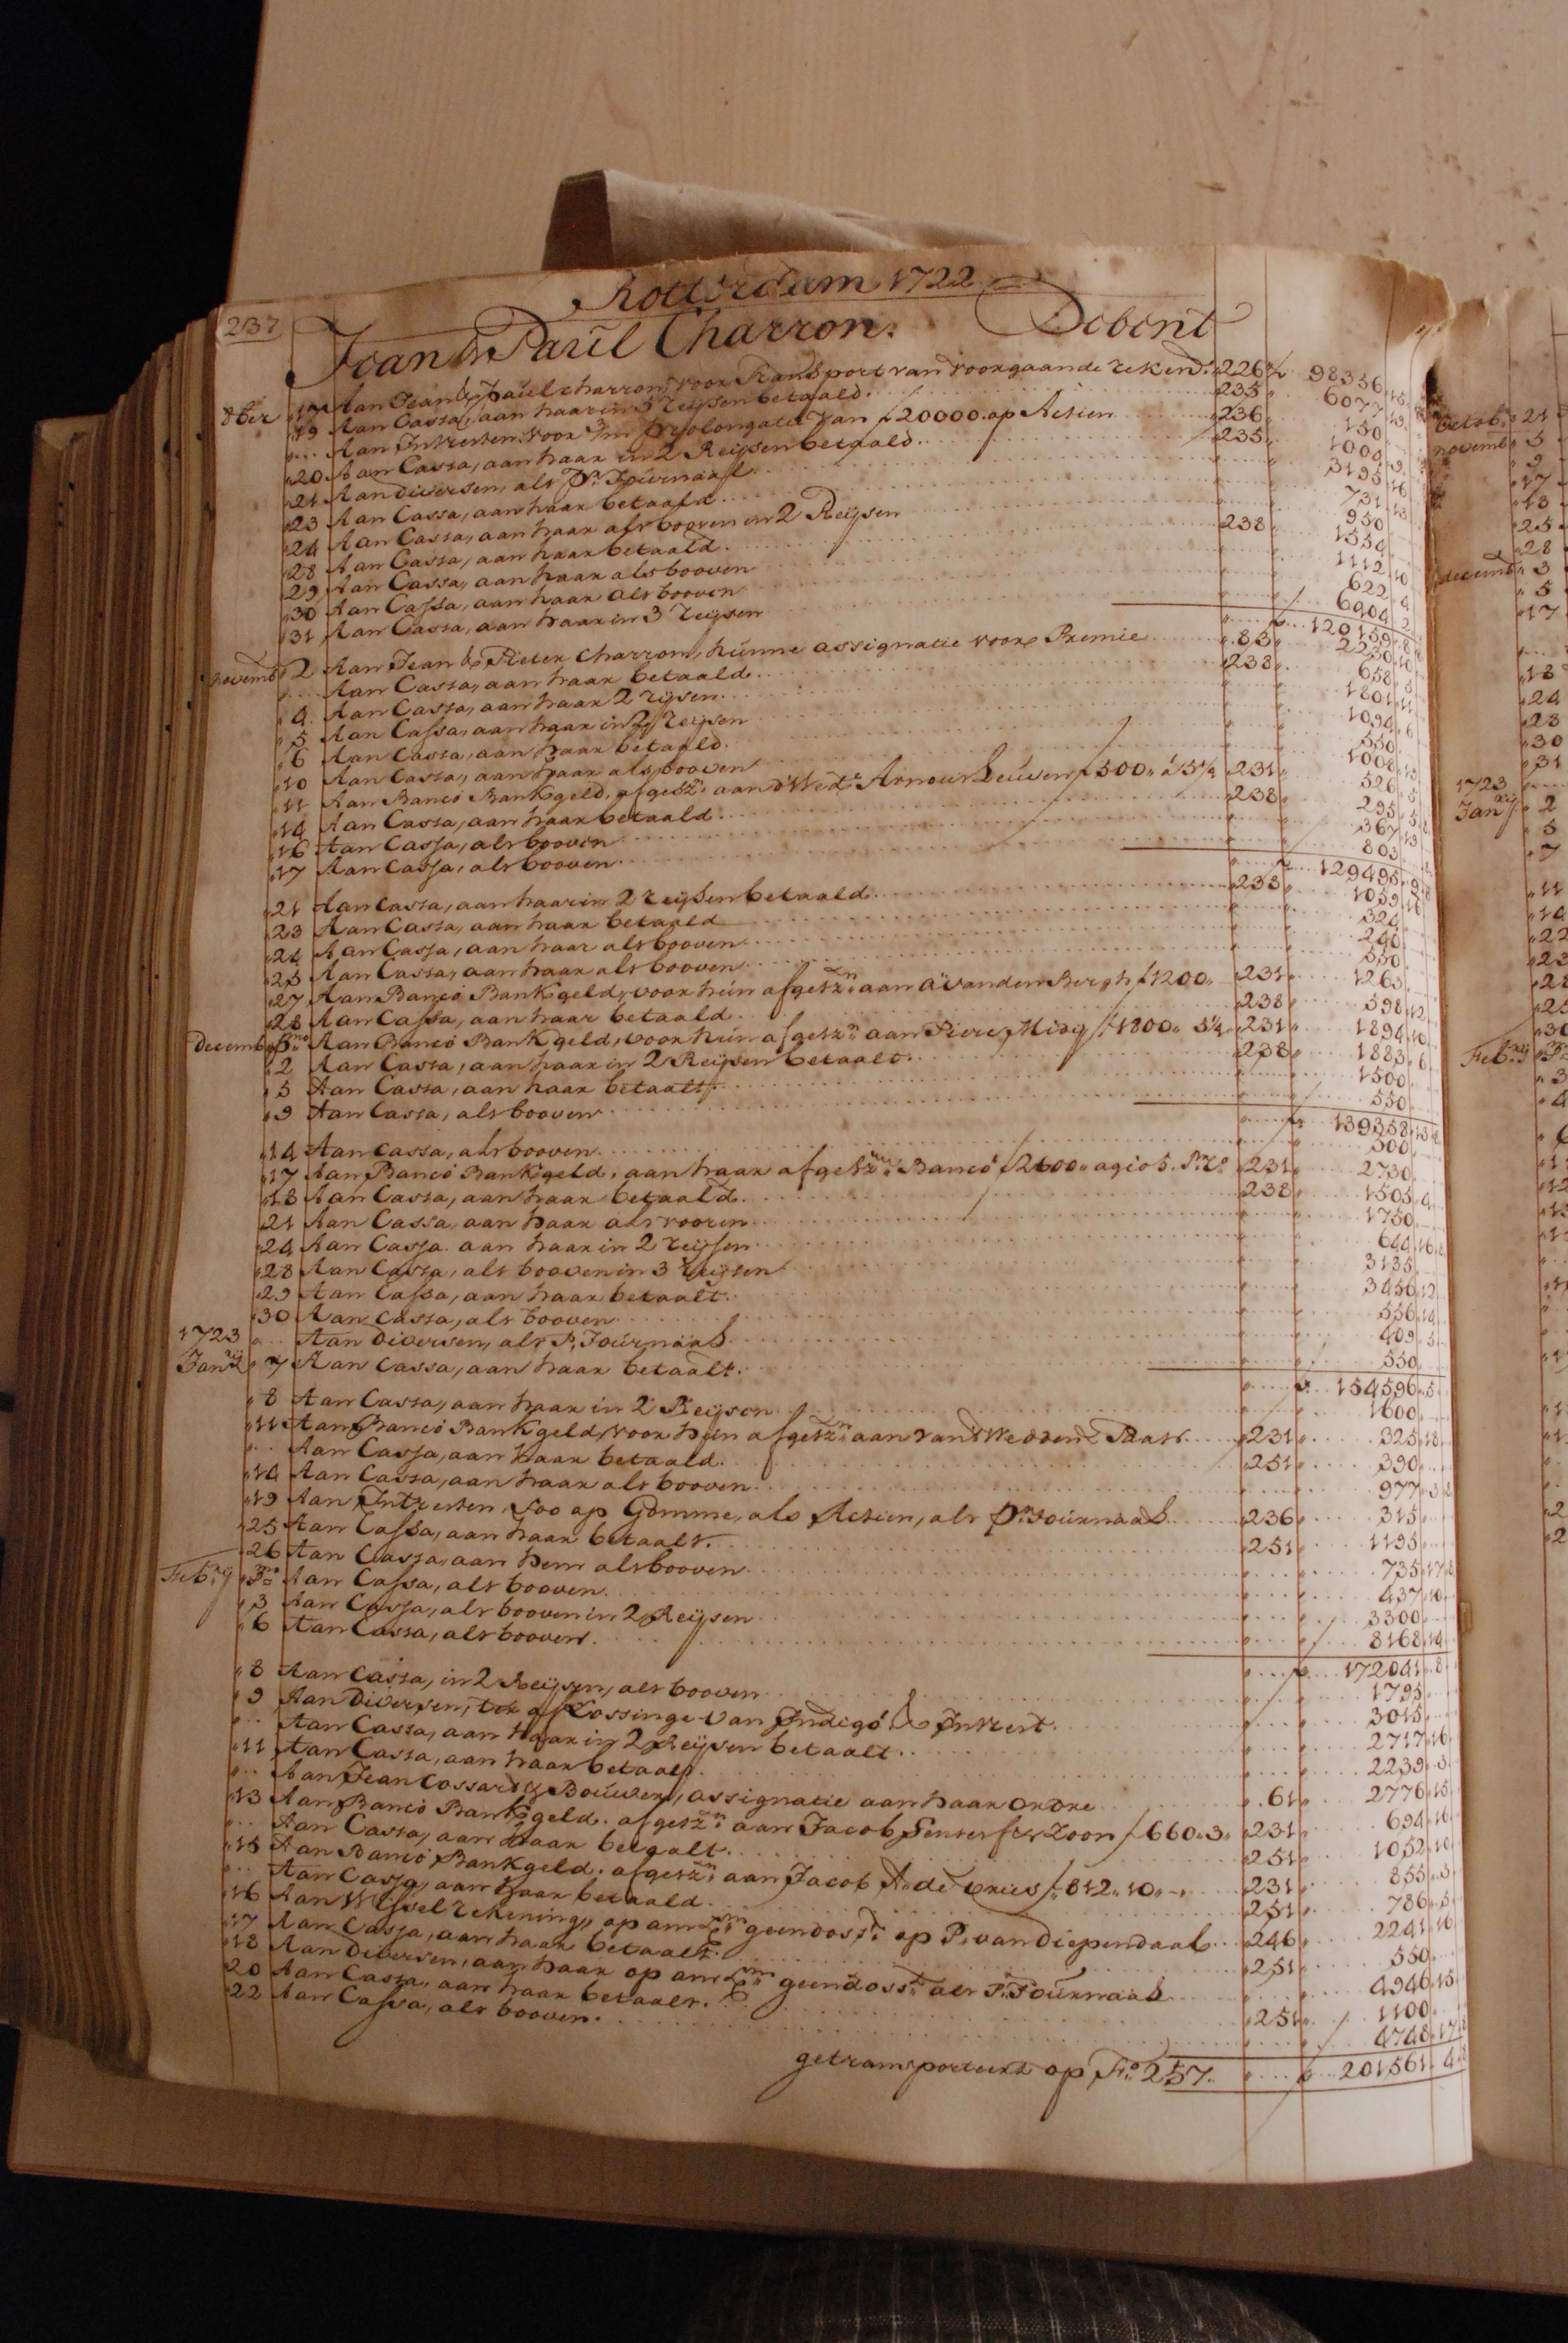 237
Rotterdam 1722
Jean & Paul Charron. Debent
8ber 17 Aan Jean & Paul Charron, voor Transport van voorgaande rekend. 226 98356
19 Aan Cassa, aan haar in 3 reijsen betaald. 235 6077
Aan Intressen voor prolongatie van f 20000 op Actien 236 150
20 Aan Cassa, aan haar in 2 Reijsen betaald 235 1004
21 Aan diversen, als Pr. Journaal 3195
23 Aan Cassa, aan haar betaald 731
24 Aan Cassa, aan haar als booven in 2 Reijsen 950
28 Aan Cassa, aan haar betaald 238 1554
29 Aan Cassa, aan haar als booven 1112 10
30 Aan Cassa, aan haar als booven 622
31 Aan Cassa, aan haar in 3 reijsen 6404 2
120159 8
novemb 2 Aan Jean & Pieter Charron, hunne assignatie voor Premie 83 2230 10
Aan Cassa, aan haar betaald 238 658
4 Aan Cassa, aan haar 2 rijsen 1801 11
5 Aan Cassa, aan haar in 2 reijsen 1094 6
6 Aan Cassa, aan haar betaald 550
10 Aan Cassa, aan haar als booven 1008 13
11 Aan Banco Bankgeld, afgesz. aan d'Wed. Arnour Leuven f 500 á 5¼ 231 526 5
14 Aan Cassa, aan haar betaald 238 295
16 Aan Cassa, als booven 367 13
17 Aan Cassa, als booven 803
129495 9
21 Aan Cassa, aan haar in 2 reijsen betaald 238 1059 16
23 Aan Cassa, aan haar betaald 324
24 Aan Cassa, aan haar als booven 240
25 Aan Cassa, aan haar als booven 550
27 Aan Banco Bankgeld, voor hún afgesz. aan A vanden Bergh f 1200 231 1263
28 Aan Cassa, aan haar betaald 238 598 12
decemb Pmo Aan Banco Bankgeld, voor hún afgesz. aan Piere f 1800 5¼ 231 1894 10
2 Aan Cassa, aan haar in 2 Reijsen betaalt 238 1883 6
5 Aan Cassa, aan haar betaalt 1500
9 Aan Cassa, als booven 550
139358 13
14 Aan Cassa, als booven 500
17 Aan Banco Bankgeld. aan haar afgesz. Banco f 2600 agio 5 P.Co 231 2730
18 Aan Cassa, aan haar betaald 238 1505 4
21 Aan Cassa, aan haar als vooren 1750
24 Aan Cassa. aan haar in 2 reijsen 644 16
28 Aan Cassa, als booven in 3 reijsen 3135
29 Aan Cassa, aan haar betaalt 3456 12
30 Aan Cassa, als booven 556 14
Aan diversen, als P. Journaal 409 5
1723
Janry 7 Aan Cassa, aan haar betaalt. 550
154596 5
8 Aan Cassa, aan haar in 2 Reijsen 1600
11 Aan Banco Bankgeld, voor hún afgesz. aan vand Wedden & Paats 231 325 18
Aan Cassa, aan haar betaald. 251 390
14 Aan Cassa, aan haar als booven 977 3
19 Aan Intressen, Soo op Gomme, als Actien, als Pr. Journaal 236 315
25 Aan Cassa, aan haar betaalt. 251 1195
26 Aan Cassa, aan hem als booven 735 17
Febry Pmo Aan Cassa, als booven 437 10
3 Aan Cassa, als booven in 2 Reijsen 3300
6 Aan Cassa, als booven 8168 14
172041 8
8 Aan Cassa, in 2 Reijsen, als booven 1795
9 Aan diversen, ter aflossinge van Indigó & Intrest 3015
Aan Cassa, aan haar in 2 Reijsen betaalt 2717 16
11 Aan Cassa, aan haar betaalt. 2239 3
Aan Jean Cossard & Bouwens, assignatie aan haar ordre 61 2776 15
13 Aan Banco Bankgeld. afgesz. aan Jacob Senserf & Zoon f 660 3 231 694 16
Aan Cassa, aan haar betaalt 251 1052 10
15 Aan Banco Bankgeld. afgesz. aan Jacob A. de Vries f 812 10 231 855 3
Aan Cassa, aan haar betaald 251 786 5
16 Aan Wisselrekening, op Amstm. geendosst. op P. van Diependaal 246 2241 10
17 Aan Cassa, aan haar betaalt 251 550
18 Aan diversen, aan haar op Amstm. geendosst. als P. Journaal 4946 15
20 Aan Cassa, aan haar betaalt. 251 1100
22 Aan Cassa, als booven. 4748 17
getransporteert op Fo. 257 201561 4
octob. 21
novemb 5
9
17
18
25
28
decemb 3
5
17
18
24
28
30
31
1723
Janry 2
5
7
11
14
22
23
Febry